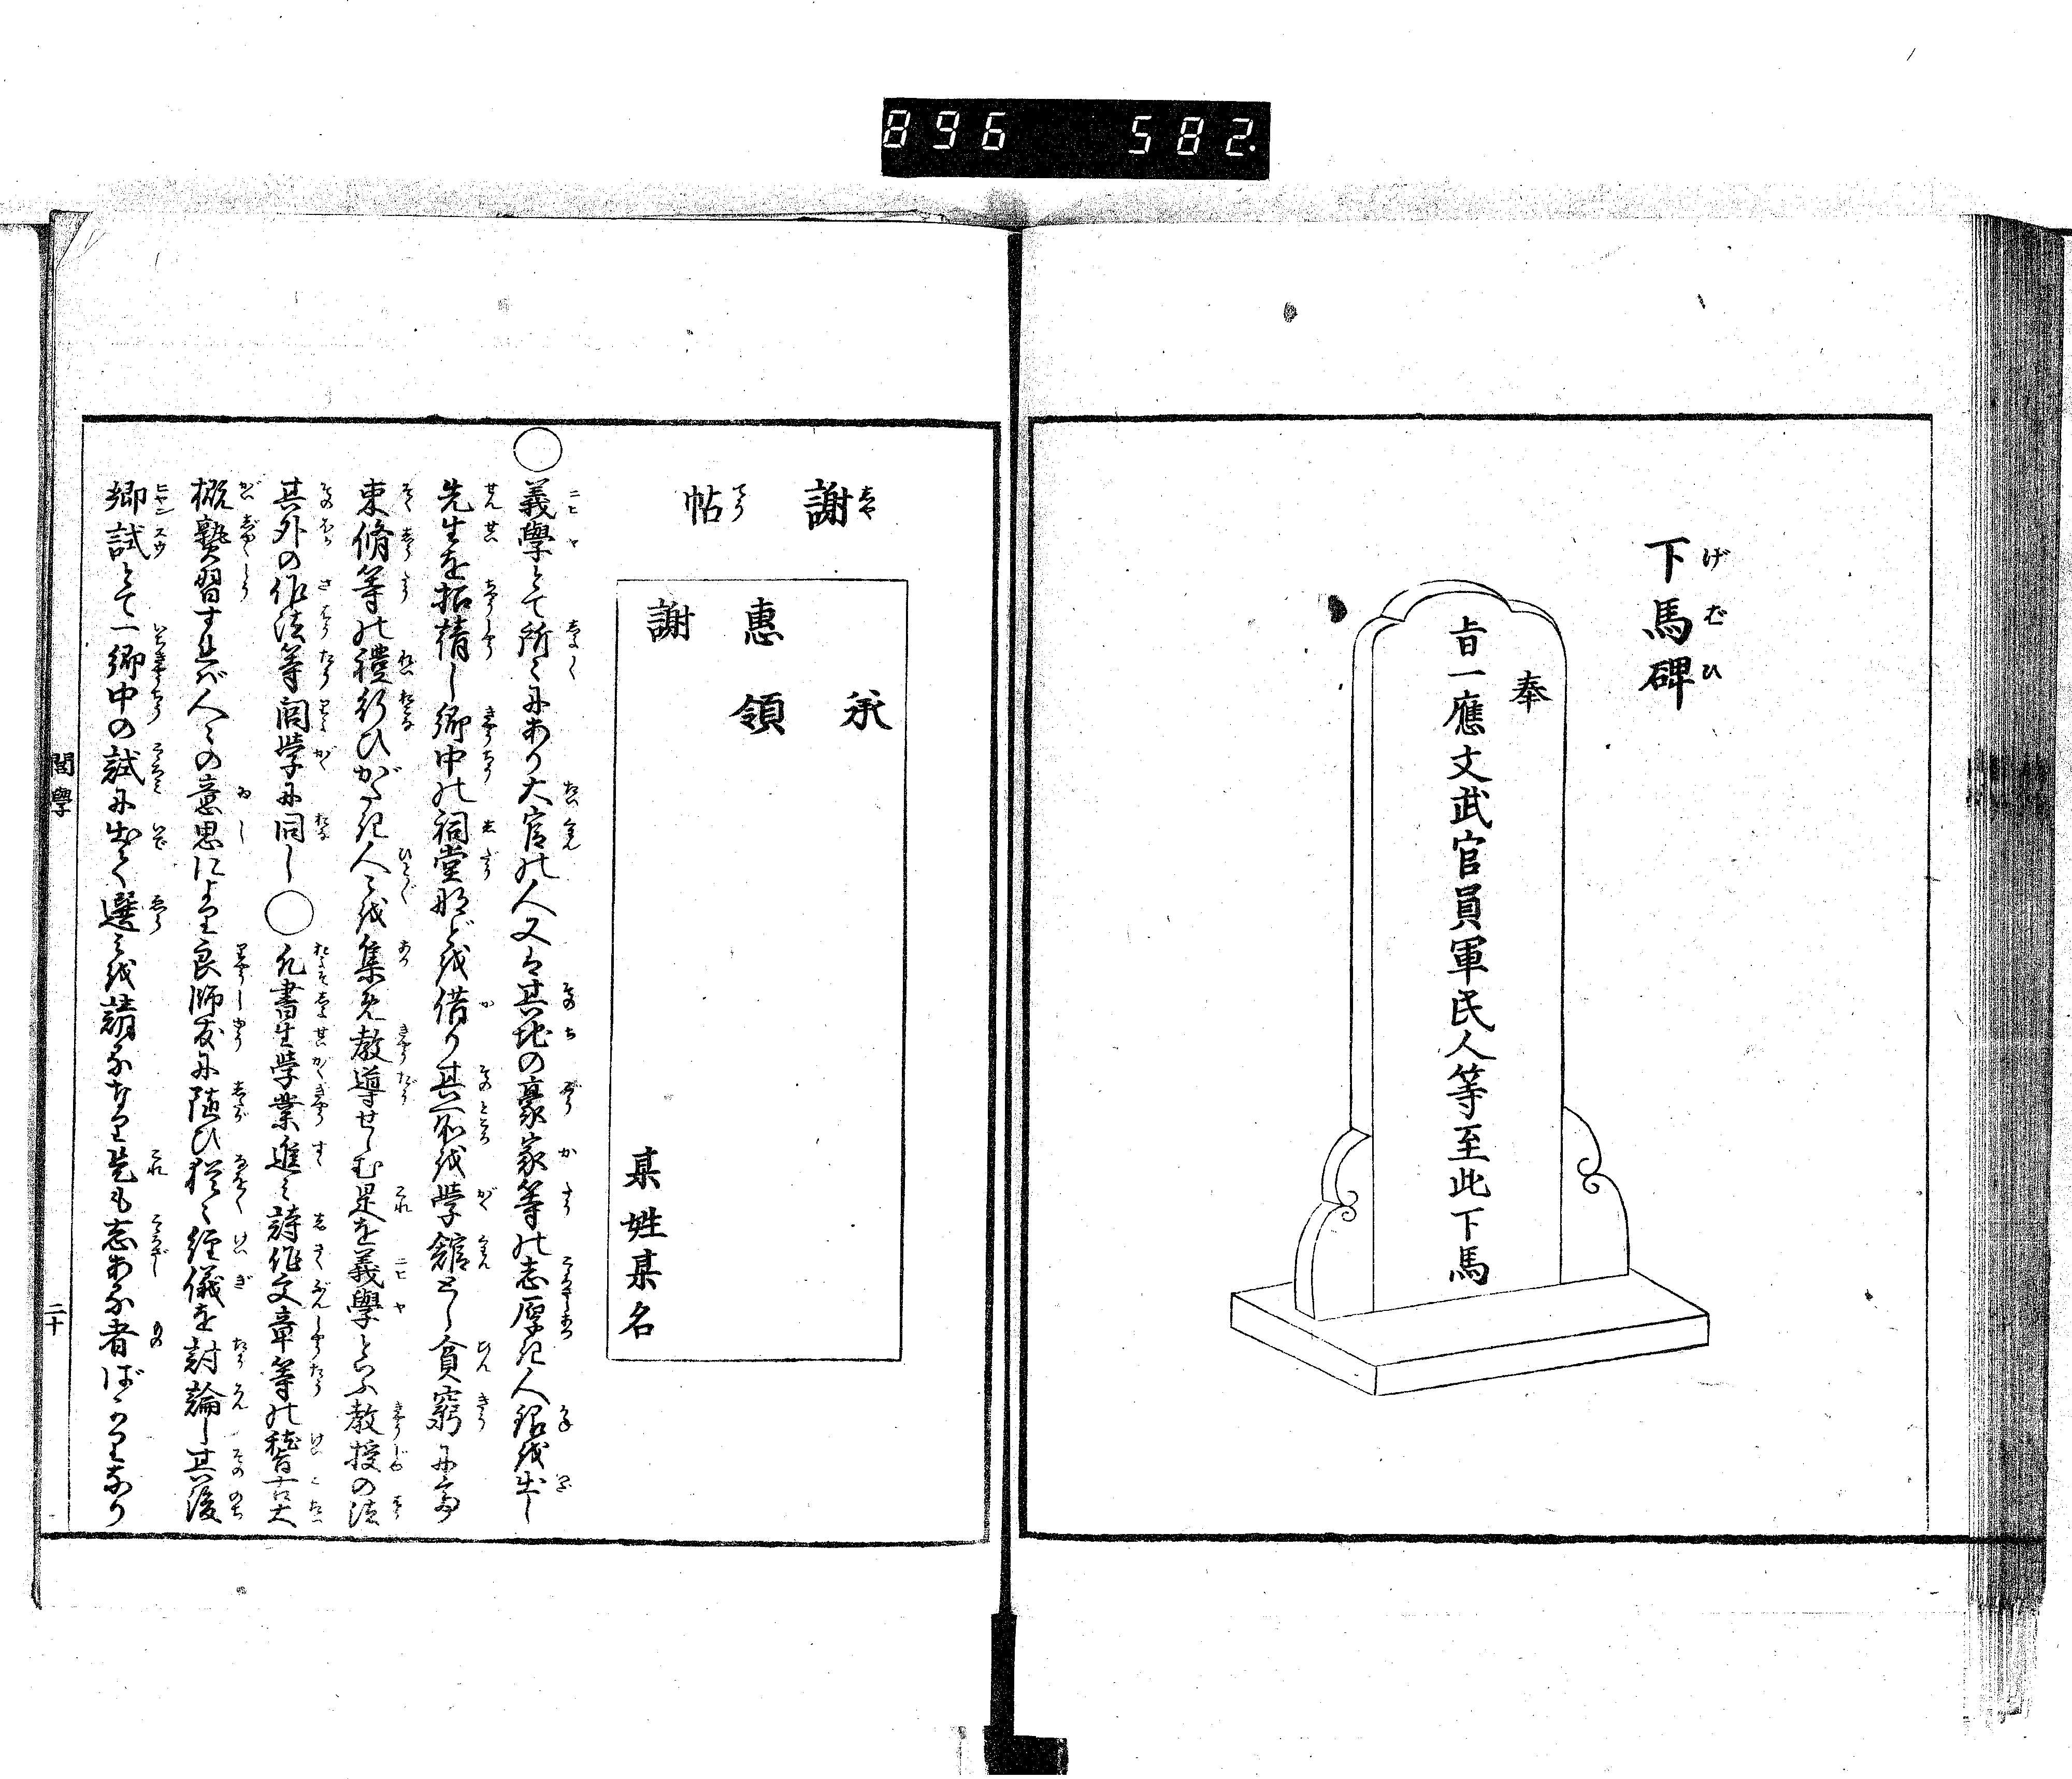 896 582.
下馬碑
げばひ
奉
旨一應文武官員軍民人等至此下馬
謝帖
承
惠領
謝
某姓某名
○義學とて所〻にあり大官の人又は其地の豪家等の志厚き人銀を出し
先生を招請し郷中の祠堂などを借り其所を学舘とし貧窮にて
束脩等の禮行ひがたき人〻を集め教導せしむ是を義學といふ教授の法
其外の作法等閭学に同し○凡書生学業進み詩作文章等の稽古大
概熟習すれば人〻の意思により良師友に随ひ猶〻經儀を討論し其後
郷試とて一郷中の試に出て選みを請るなり是も志ある者ばかりなり
閭學
二十